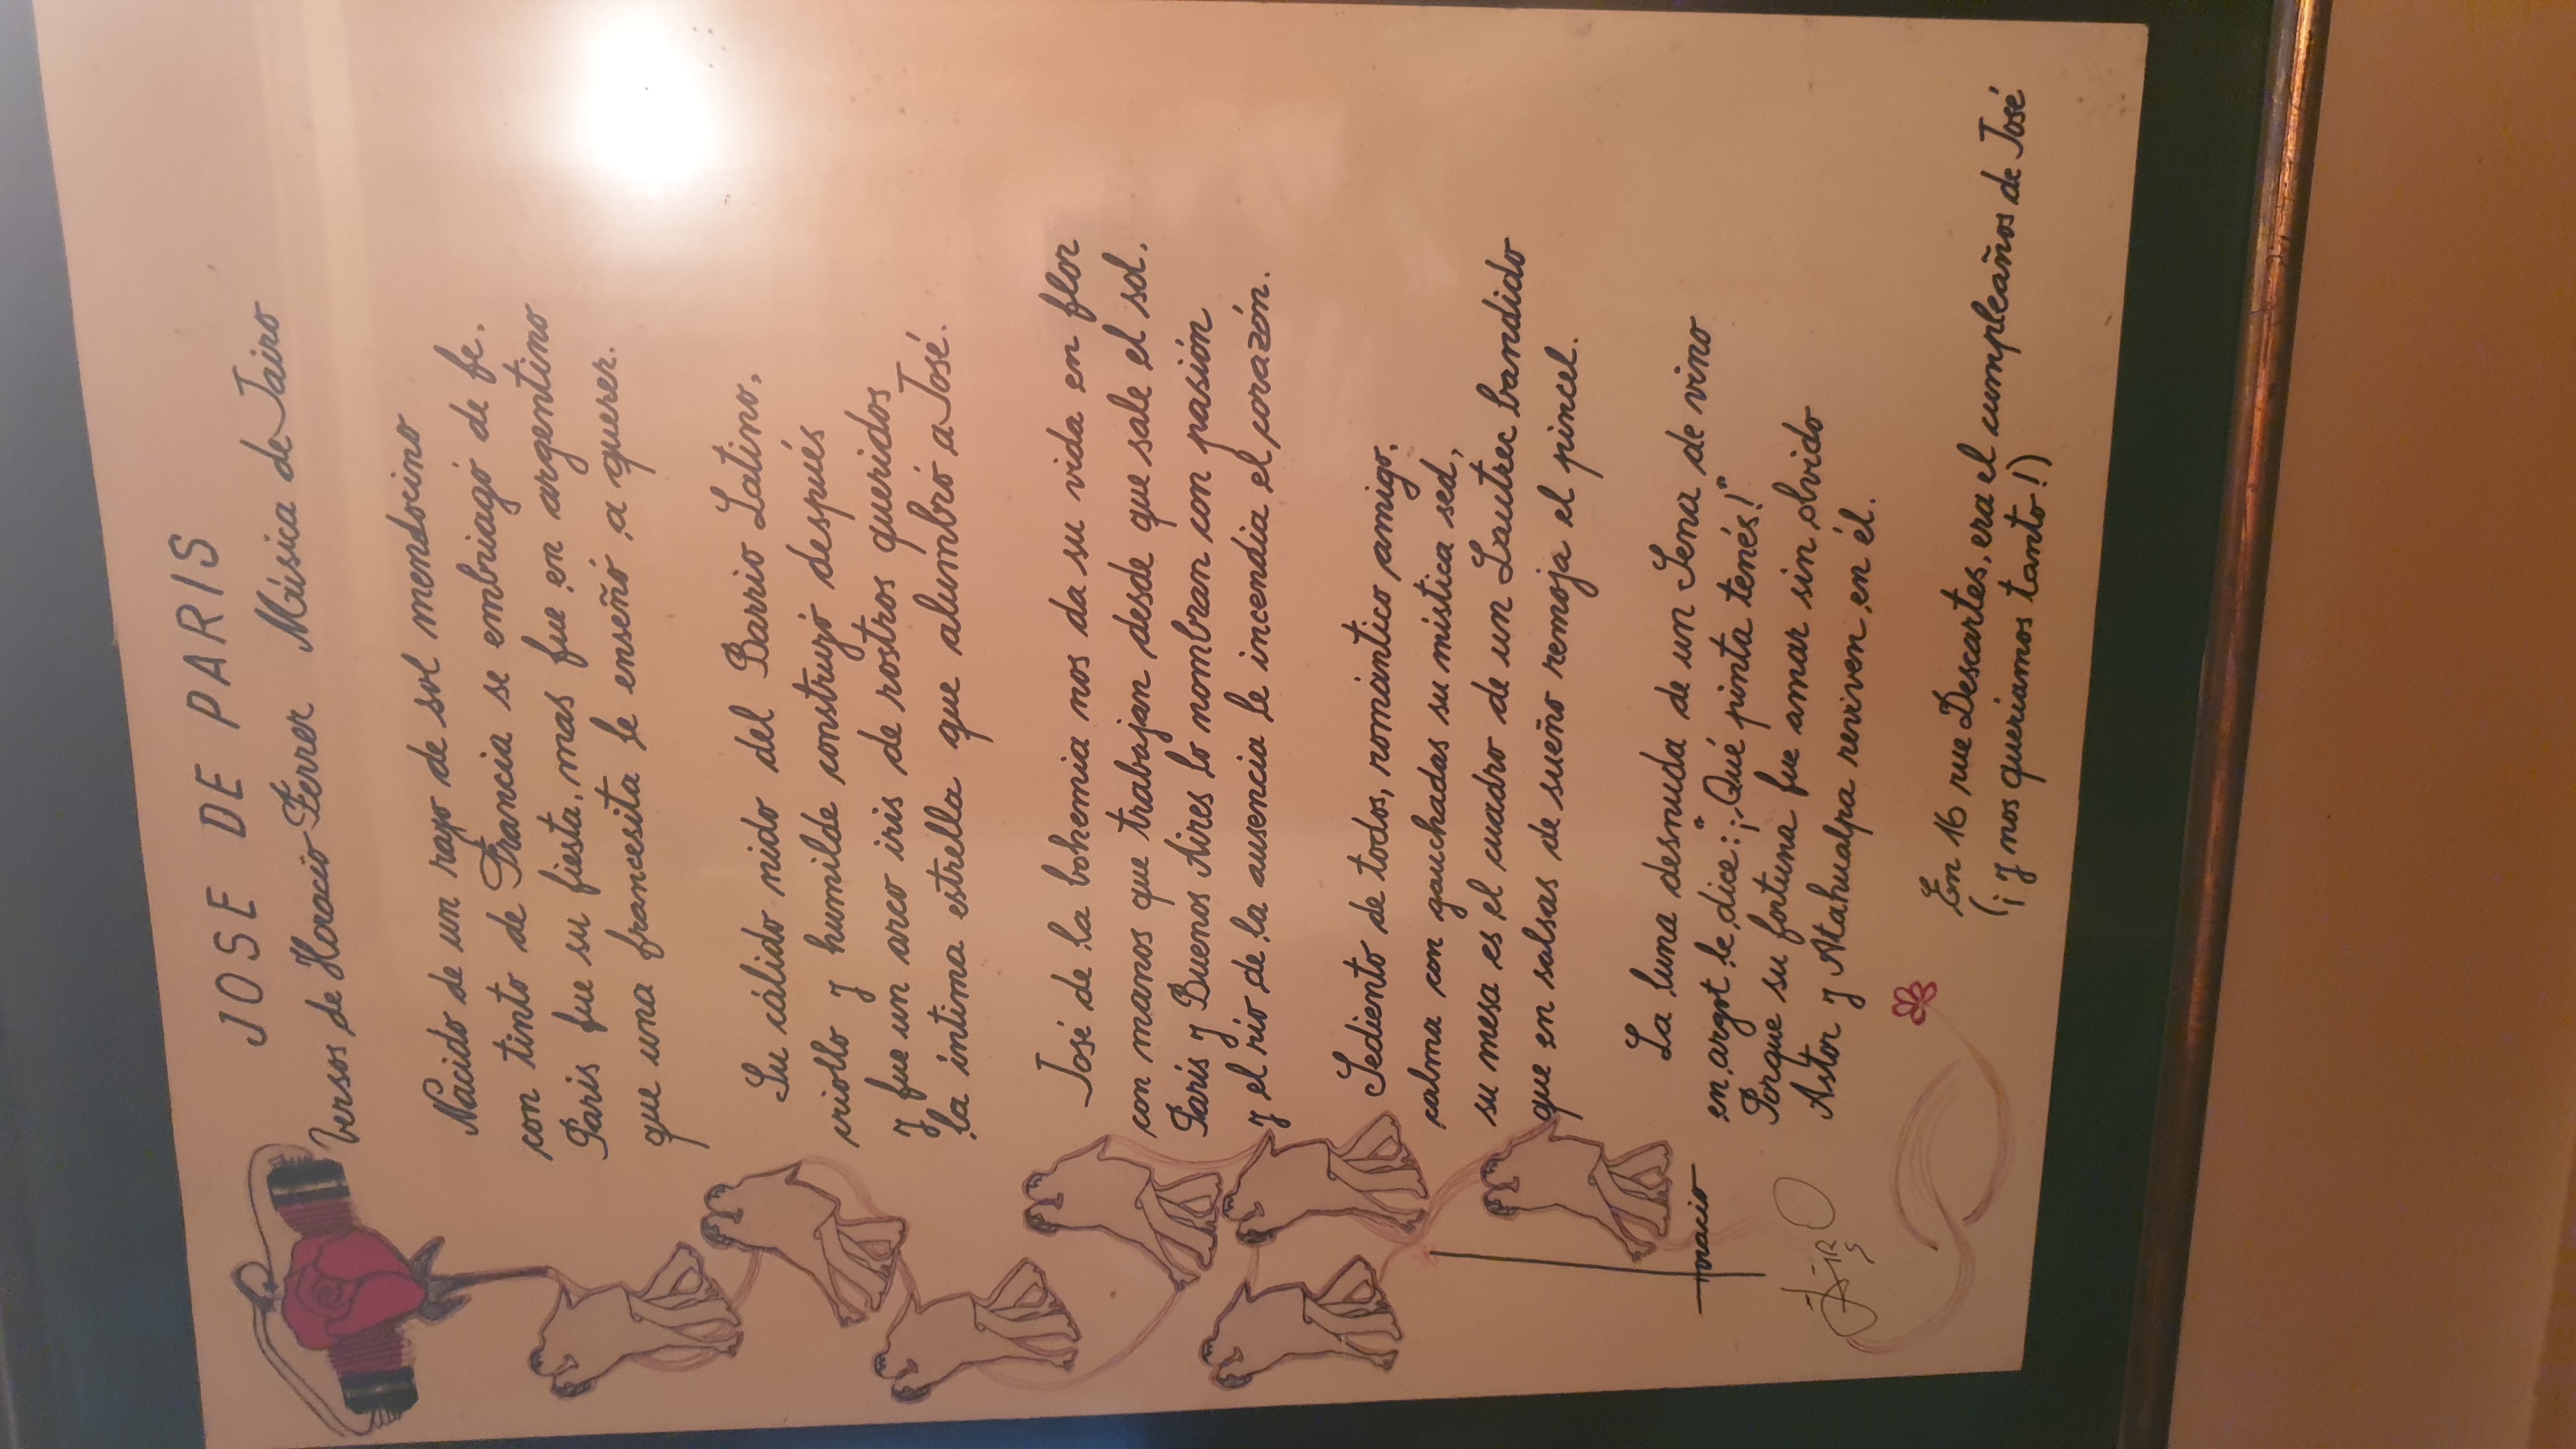 JOSE DE PARIS
Versos de Horacio Ferrer Música de Jairo
Nacido de un rayo de sol mendocino
con tinto de Francia se embriagó de fe.
Paris fue su fiesta, mas fue en argentino
que una francesita le enseñó a querer.
Su cálido nido del Barrio Latino,
criollo y humilde construyó después
y fue un arco iris de rostros queridos
la íntima estrella que alumbró a José.
José de la bohemia nos da su vida en flor
con manos que trabajan desde que sale el sol.
Paris y Buenos Aires lo nombran con pasión
y el río de la ausencia le incendia el corazón.
Sediento de todos, romántico amigo,
calma con gauchadas su mística sed,
su mesa es el cuadro de un Lautrec bandido
que en salsas de sueño remoja el pincel.
La luna desnuda de un Sena de vino
en argot le dice: "¡Qué pinta tenés!"
Porque su fortuna fue amar sin olvido
Astor y Atahualpa reviven en él.
En 16 rue Descartes, era el cumpleaños de José
(¡y nos queriamos tanto!)
Horacio